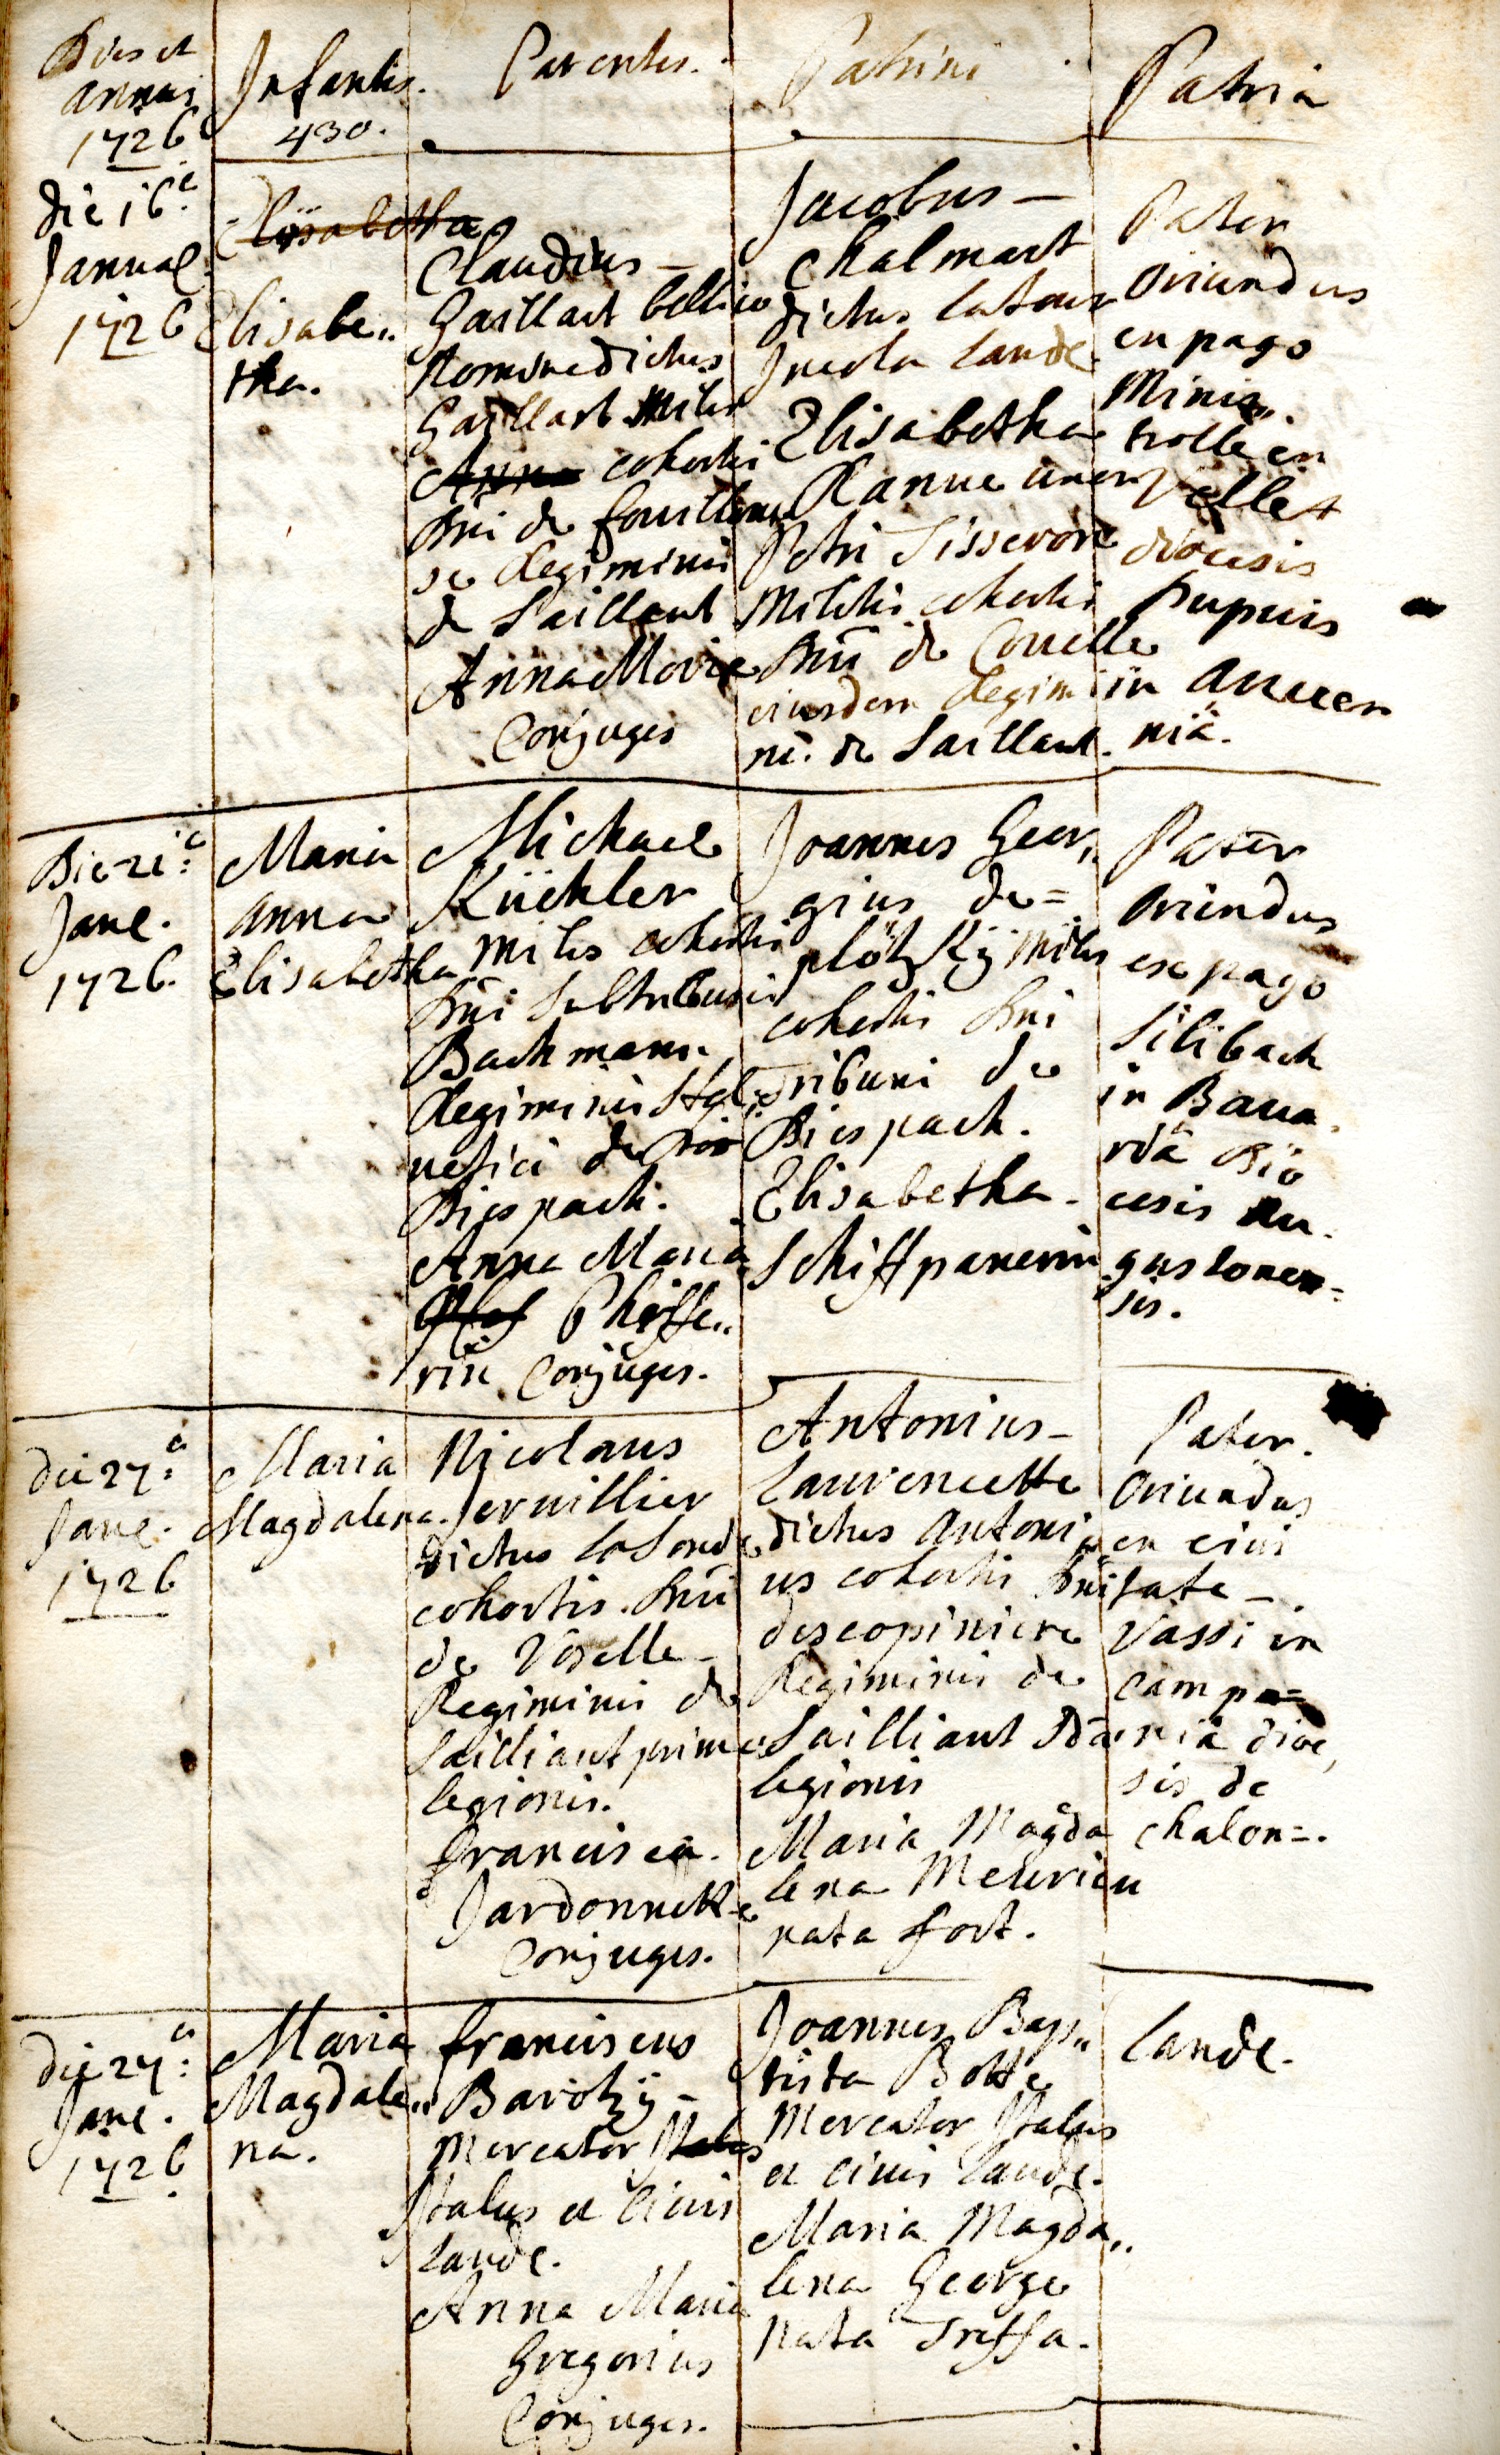 Dies et
annus
1726
Infantis.
430.
Parentes.
Patrini
Patria
die 16ª
Januae
1726
Elisabetha
Elisabe„
tha.
Claudius –
Gaillart bellico
Nomine dictus
Gaillart Miles
Anna cohortis
Dni de
se Regiminis
de Saillant
Anna Marie
Conjuges
Jacobus –
Chalmart
dictus Latour
Incola Lande.
Elisabetha
Ranue uxor
Petri
Militis cohortis
Dni de Couelle
eiusdem Regimi
nis de Saillant.
Pater
oriundus
ex pago
Minis„
trolle en
Vellet
diocesis
Dupuis
in Auuer
niâ.
Die 21ª
Janu.
1726.
Maria
Anna
Elisabetha
Michael
Küchler
Miles cohortis
Dni Subtribuni
Bachmann
Regiminis Hel
uetici de
Diespach.
Anna Maria
Phiffe„
rin Conjuges.
Joannes Geor„
gius de=
plötzkÿ Miles
cohortis Dni
Tribuni de
Diespach.
Elisabetha
Schiffpanerin
Pater
Oriundus
ex pago
Silibach
in Baua
riâ Dio
cesis Au
gustonen=
sis.
die 27ª
Janu.
1726
Maria
Magdalena
Nicolaus
Jeruillier
Dictus LaSonde
cohortis Dni
de Voselle
Regiminis de
Sailliant primæ
legionis.
francisca
Jardonnette
Conjuges.
Antonius –
Laurencette
dictus Antoni
us cohortis Dni
descopiniere
Regiminis de
Sailliant 2dæ
legionis
Maria Magda
lena Meurieu
nata fort.
Pater.
Oriundus
ex ciui
tate –
Vassi in
campa=
niâ dioe
sis de
chalon=.
die 27ª
Janu.
1726
Maria
Magdale„
na.
franciscus
Barotzÿ –
Mercator Italus
Italus et Ciuis
Lande.
Anna Maria
Gregorius
Conjuges.
Joannes Bap„
tista Botte
Mercator Italus
et ciuis Lande.
Maria Magda„
lena George
Nata Treffa.
Lande.